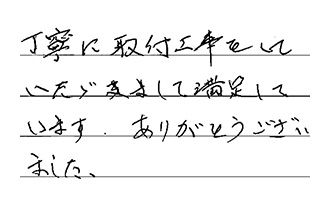 丁寧に取付工事をして
いただきまして満足して
います. ありがとうござい
ました、